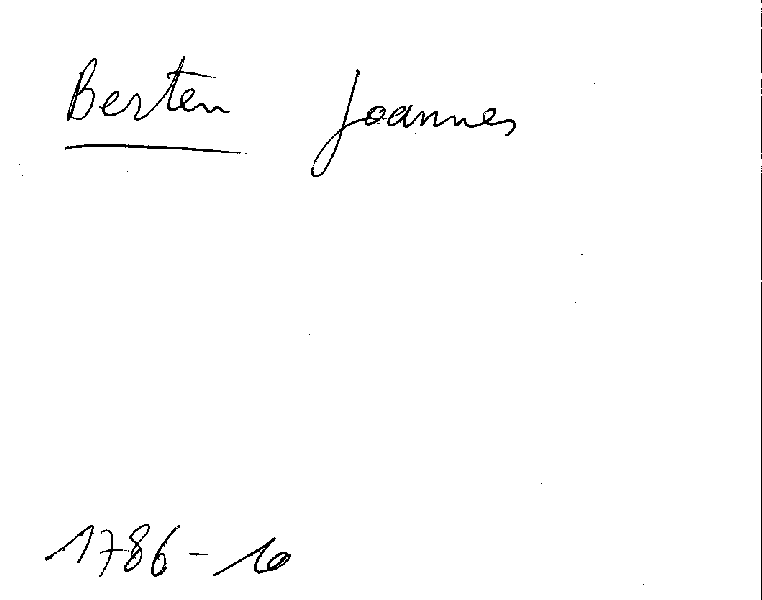 Berten Joannes
1786-10